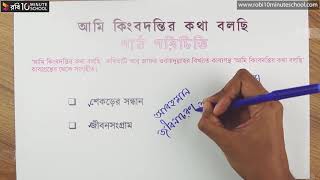 রবি 10 MINUTE SCHOOL
www.robi10minuteschool.com
আমি কিংবদন্তির কথা বলছি
পাঠ পরিচিতি
'আমি কিংবদন্তির কথা বলছি' কবিতাটি আবু জাফর ওবায়দুল্লাহর বিখ্যাত কাব্যগ্রন্থ 'আমি কিংবদন্তির কথা বলছি'
কাব্যগ্রন্থের থেকে সংগৃহীত।
শেকড়ের সন্ধান
আবহমান
জীবনসংগ্রাম